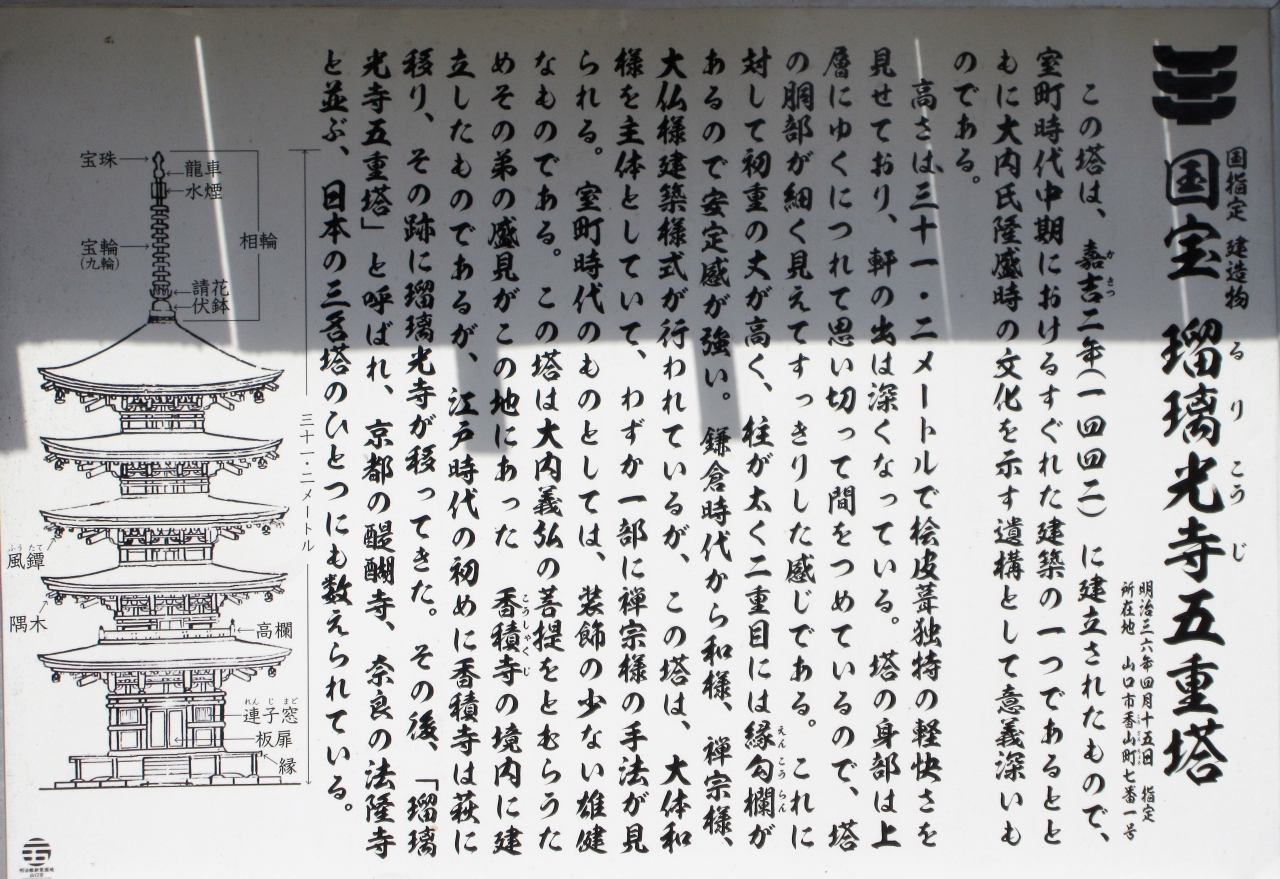 国指定 建造物
国宝 瑠璃光寺五重塔
るりこうじ
明治三六年四月十五日 指定
所在地 山口市香山町七番一号
この塔は、嘉吉二年(一四四二)に建立されたもので、
かきつ
室町時代中期におけるすぐれた建築の一つであるとと
もに大内氏隆盛時の文化を示す遺構として意義深いも
のである。
高さは三十一・二メートルで桧皮葺独特の軽快さを
見せており、軒の出は深くなっている。塔の身部は上
層にゆくにつれて思い切って間をつめているので、塔
の胴部が細く見えてすっきりした感じである。これに
対して初重の丈が高く、柱が太く二重目には縁勾欄が
えんこうらん
あるので安定感が強い。鎌倉時代から和様、禅宗様、
大仏様建築様式が行われているが、この塔は、大体和
様を主体としていて、わずか一部に禅宗様の手法が見
られる。室町時代のものとしては、装飾の少ない雄健
なものである。この塔は大内義弘の菩提をとむらうた
めその弟の盛見がこの地にあった 香積寺の境内に建
こうしゃくじ
立したものであるが、江戸時代の初めに香積寺は萩に
移り、その跡に瑠璃光寺が移ってきた。その後、「瑠璃
光寺五重塔」と呼ばれ、京都の醍醐寺、奈良の法隆寺
と並ぶ、日本の三名塔のひとつにも数えられている。
宝珠
龍車
水煙
相輪
宝輪
(九輪)
請花
伏鉢
三十一・二メートル
風鐔
ふうたて
隅木
高欄
連子窓
れんじまど
板扉
縁